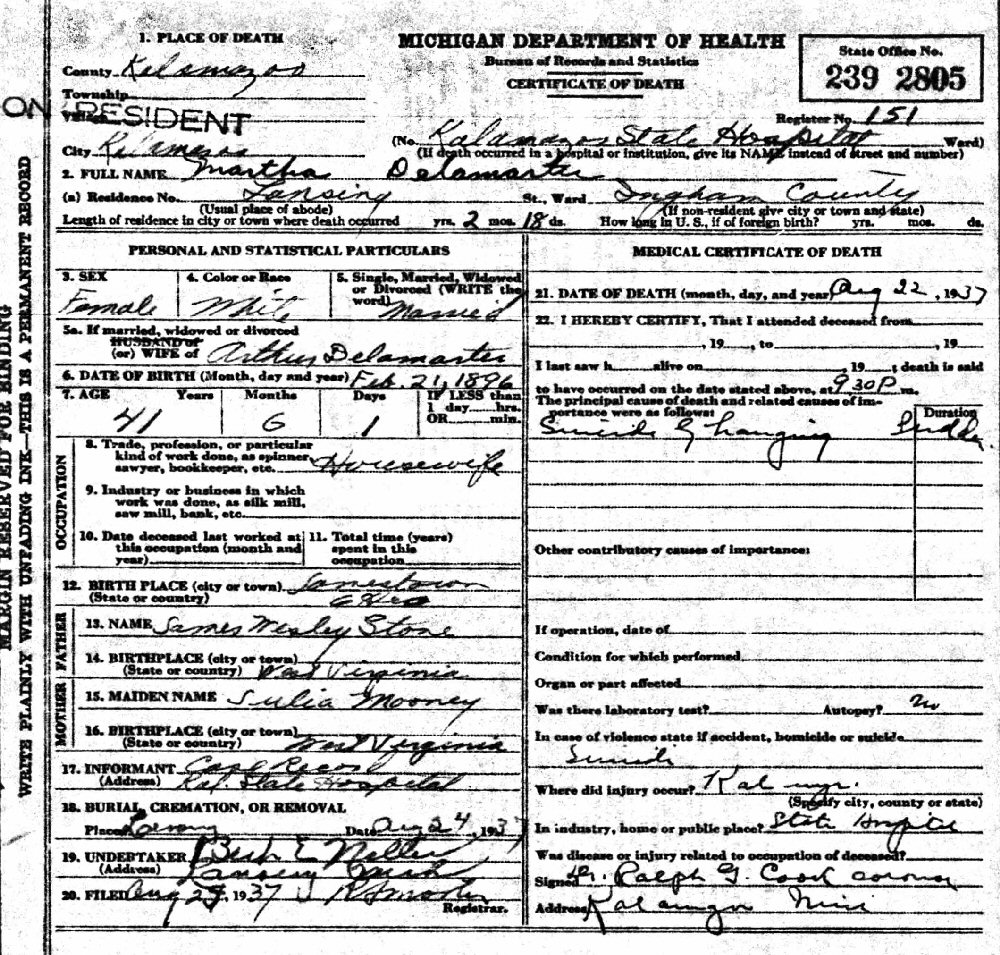 1. PLACE OF DEATH
County Kalamazoo
Township
Village
NON RESIDENT
City Kalamazoo
MICHIGAN DEPARTMENT OF HEALTH
Bureau of Records and Statistics
CERTIFICATE OF DEATH
State Office No.
239 2805
Register No. 151
(No. Kalamazoo State Hospital Ward)
(If death occurred in a hospital or institution, give its NAME instead of street and number)
2. FULL NAME Martha Delamarter
(a) Residence No. Lansing St., Ward Ingham County
(Usual place of abode) (If non-resident give city or town and state)
Length of residence in city or town where death occurred yrs. 2 mos. 18 ds. How long in U. S., if of foreign birth? yrs. mos. ds.
MARGIN RESERVED FOR BINDING
WRITE PLAINLY WITH UNFADING INK—THIS IS A PERMANENT RECORD
PERSONAL AND STATISTICAL PARTICULARS
3. SEX
Female
4. Color or Race
White
5. Single, Married, Widowed
or Divorced (WRITE the
word) Married
5a. If married, widowed or divorced
HUSBAND of
(or) WIFE of Arthur Delamarter
6. DATE OF BIRTH (Month, day and year) Feb. 21, 1896
7. AGE Years Months Days IF LESS than
1 day hrs.
OR min.
41 6 1
OCCUPATION
8. Trade, profession, or particular
kind of work done, as spinner,
sawyer, bookkeeper, etc. Housewife
9. Industry or business in which
work was done, as silk mill,
saw mill, bank, etc.
10. Date deceased last worked at
this occupation (month and
year)
11. Total time (years)
spent in this
occupation
12. BIRTH PLACE (city or town) Jamestown
(State or country) Ohio
FATHER
13. NAME James Wesley Stone
14. BIRTHPLACE (city or town)
(State or country) West Virginia
MOTHER
15. MAIDEN NAME Julia Mooney
16. BIRTHPLACE (city or town)
(State or country) West Virginia
17. INFORMANT Case Record
(Address) Kal. State Hospital
18. BURIAL, CREMATION, OR REMOVAL
Place Lansing Date Aug 24, 1937
19. UNDERTAKER
(Address) Lansing Mich
20. FILED Aug 1937
Registrar.
MEDICAL CERTIFICATE OF DEATH
21. DATE OF DEATH (month, day, and year) Aug 22, 1937
22. I HEREBY CERTIFY, That I attended deceased from
, 19 , to , 19
I last saw h alive on , 19 ; death is said
to have occurred on the date stated above, at 9 30 P m.
The principal cause of death and related causes of im-
portance were as follows: Duration
Suicide by hanging Sudden
Other contributory causes of importance:
If operation, date of
Condition for which performed
Organ or part affected
Was there laboratory test? Autopsy? no
In case of violence state if accident, homicide or suicide
Suicide
Where did injury occur?
(Specify city, county or state)
In industry, home or public place? State Hospital
Was disease or injury related to occupation of deceased?
Signed Dr. Ralph G. Cook coroner
Address Kalamazoo Mich